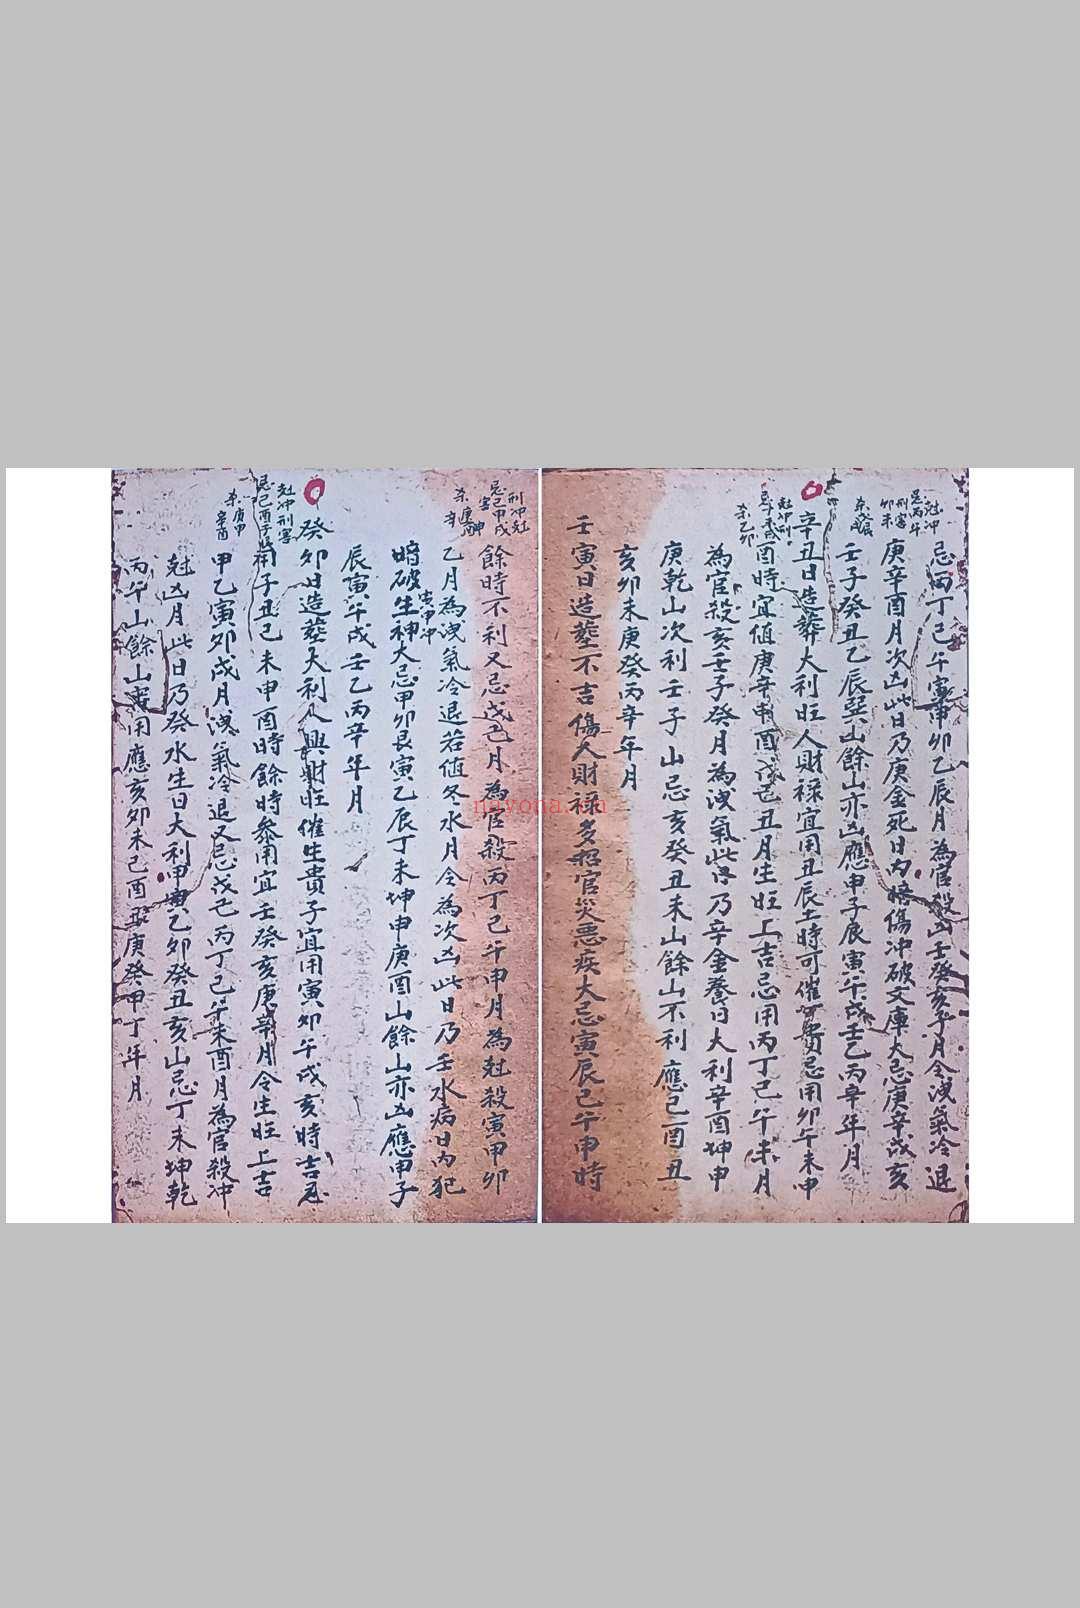 忌丙丁巳午寅甲卯乙辰月為官殺凶壬癸亥子月令洩氣冷退
庚辛酉月次凶此日乃庚金死日內暗傷冲破文庫大忌庚辛戌亥
壬子癸丑乙辰巽山餘山亦凶應申子辰寅午戌壬乙丙辛年月
辛丑日造葬大利旺人財祿宜用丑辰二時可催貴忌用卯午未申
酉時宜值庚辛申酉戊己丑月生旺上吉忌用丙丁巳午未月
為官殺亥壬子癸月為洩氣此日乃辛金養日大利辛酉坤申
庚乾山次利壬子山忌亥癸丑未山餘山不利應巳酉丑
亥卯未庚癸丙辛年月
壬寅日造塟不吉傷人財祿多招官災惡疾大忌寅辰巳午申時
餘時不利又忌戊己月為官殺丙丁巳午申月為尅殺寅甲卯
乙月為洩氣冷退若值冬水月令為次凶此日乃壬水病日內犯
暗破生神大忌甲卯艮寅乙辰丁未坤申庚酉山餘山亦凶應申子
寅申冲
辰寅午戌壬乙丙辛年月
癸卯日造塟大利人興財旺催生貴子宜用寅卯午戌亥時吉忌
用子丑巳未申酉時餘時參用宜壬癸亥庚辛月令生旺上吉
甲乙寅卯戌月洩氣冷退又忌戊己丙丁巳午未酉月為官殺冲
尅凶月此日乃癸水生日大利甲寅乙卯癸丑亥山忌丁未坤乾
丙午山餘山審用應亥卯未巳酉丑庚癸甲丁年月
navona.ca